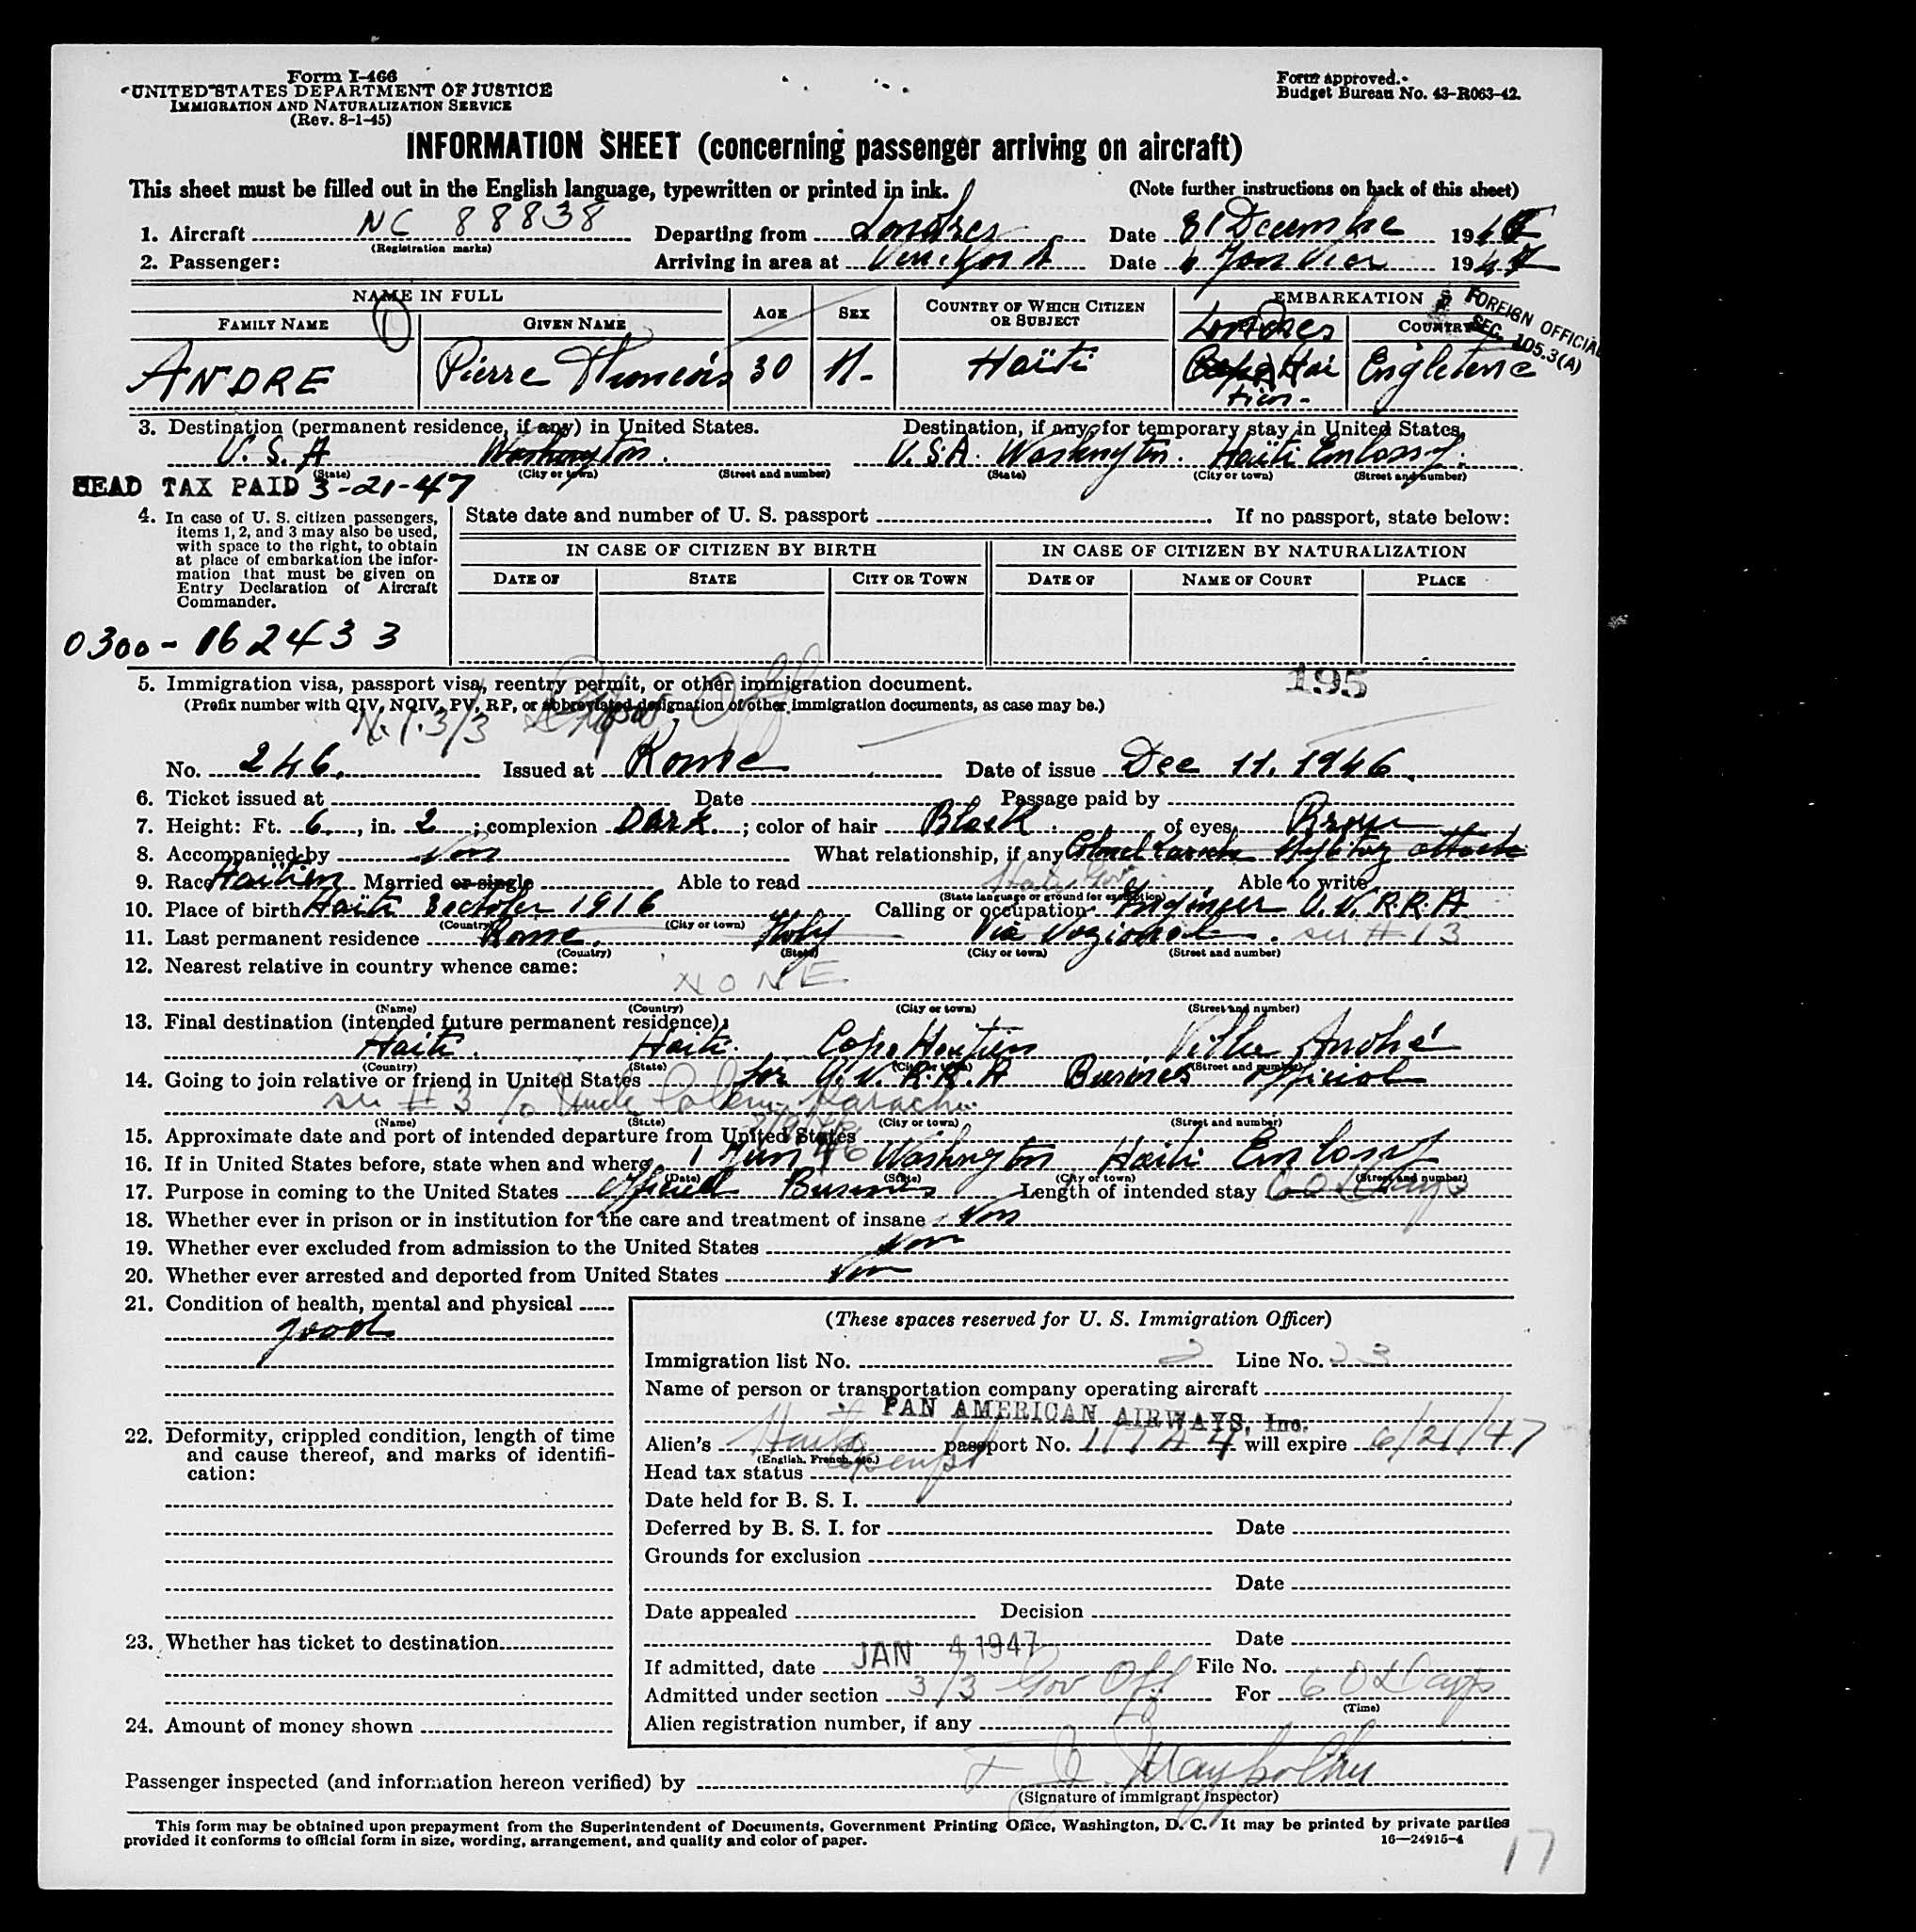 Form I-466
UNITED STATES DEPARTMENT OF JUSTICE
IMMIGRATION AND NATURALIZATION SERVICE
(Rev. 8-1-45)
Form approved.
Budget Bureau No. 43-R063-42.
INFORMATION SHEET (concerning passenger arriving on aircraft)
This sheet must be filled out in the English language, typewritten or printed in ink. (Note further instructions on back of this sheet)
1. Aircraft NC 88838 Departing from Londres Date 31 Decembre 194
(Registration marks)
2. Passenger: Arriving in area at Date Janvier 1947
NAME IN FULL AGE SEX COUNTRY OF WHICH CITIZEN OR SUBJECT EMBARKATION
FAMILY NAME GIVEN NAME Londres COUNTRY
FOREIGN OFFICIAL
SEC. 105.3(A)
ANDRE Pierre 30 Haïti Engleterre
3. Destination (permanent residence, if any) in United States. Destination, if any, for temporary stay in United States.
U.S.A Washington. U.S.A. Washington. Haïti Embassy.
(State) (City or town) (Street and number) (State) (City or town) (Street and number)
HEAD TAX PAID 3-21-47
4. In case of U. S. citizen passengers, items 1, 2, and 3 may also be used, with space to the right, to obtain at place of embarkation the information that must be given on Entry Declaration of Aircraft Commander.
State date and number of U. S. passport If no passport, state below:
IN CASE OF CITIZEN BY BIRTH IN CASE OF CITIZEN BY NATURALIZATION
DATE OF STATE CITY OR TOWN DATE OF NAME OF COURT PLACE
0300-162433
195
5. Immigration visa, passport visa, reentry permit, or other immigration document.
(Prefix number with QIV, NQIV, PV, RP, or abbreviated designation of other immigration documents, as case may be.)
3/3 Off
No. 246. Issued at Rome Date of issue Dec 11. 1946
6. Ticket issued at Date Passage paid by
7. Height: Ft. 6, in. 2; complexion Dark; color of hair Black of eyes Brown
8. Accompanied by Non What relationship, if any Colonel
9. Race Haïtien Married or single Able to read Able to write
(State language or ground for exemption)
10. Place of birth Haïti 1916 Calling or occupation Engineer U.N.R.R.A
(Country) (City or town)
11. Last permanent residence Rome. Italy Via see # 13
(Country) (State) (City or town) (Street and number)
12. Nearest relative in country whence came:
NONE
(Name) (Country) (City or town) (Street and number)
13. Final destination (intended future permanent residence):
Haïti. Haïti. Cape Haïtien Villa André
(Country) (State) (City or town) (Street and number)
14. Going to join relative or friend in United States for U.N.R.R.A Business official
see # 3 c/o Uncle
(Name) (State) (City or town) (Street and number)
15. Approximate date and port of intended departure from United States
16. If in United States before, state when and where 46 Washington Haïti Embassy
(Date) (State) (City or town) (Street and number)
17. Purpose in coming to the United States Official Business Length of intended stay 60 Days
18. Whether ever in prison or in institution for the care and treatment of insane Non
19. Whether ever excluded from admission to the United States Non
20. Whether ever arrested and deported from United States Non
21. Condition of health, mental and physical
good
22. Deformity, crippled condition, length of time and cause thereof, and marks of identification:
23. Whether has ticket to destination
24. Amount of money shown
(These spaces reserved for U. S. Immigration Officer)
Immigration list No. 2 Line No. 23
Name of person or transportation company operating aircraft
PAN AMERICAN AIRWAYS, Inc.
Alien's Haiti passport No. 11744 will expire 6/21/47
(English, French, etc.)
Head tax status Exempt
Date held for B. S. I.
Deferred by B. S. I. for Date
Grounds for exclusion
Date
Date appealed Decision
Date
If admitted, date JAN 4 1947 File No.
Admitted under section 3/3 Gov Off For 60 Days
(Time)
Alien registration number, if any
Passenger inspected (and information hereon verified) by
(Signature of immigrant inspector)
This form may be obtained upon prepayment from the Superintendent of Documents, Government Printing Office, Washington, D. C. It may be printed by private parties
provided it conforms to official form in size, wording, arrangement, and quality and color of paper. 16—24915-4
17